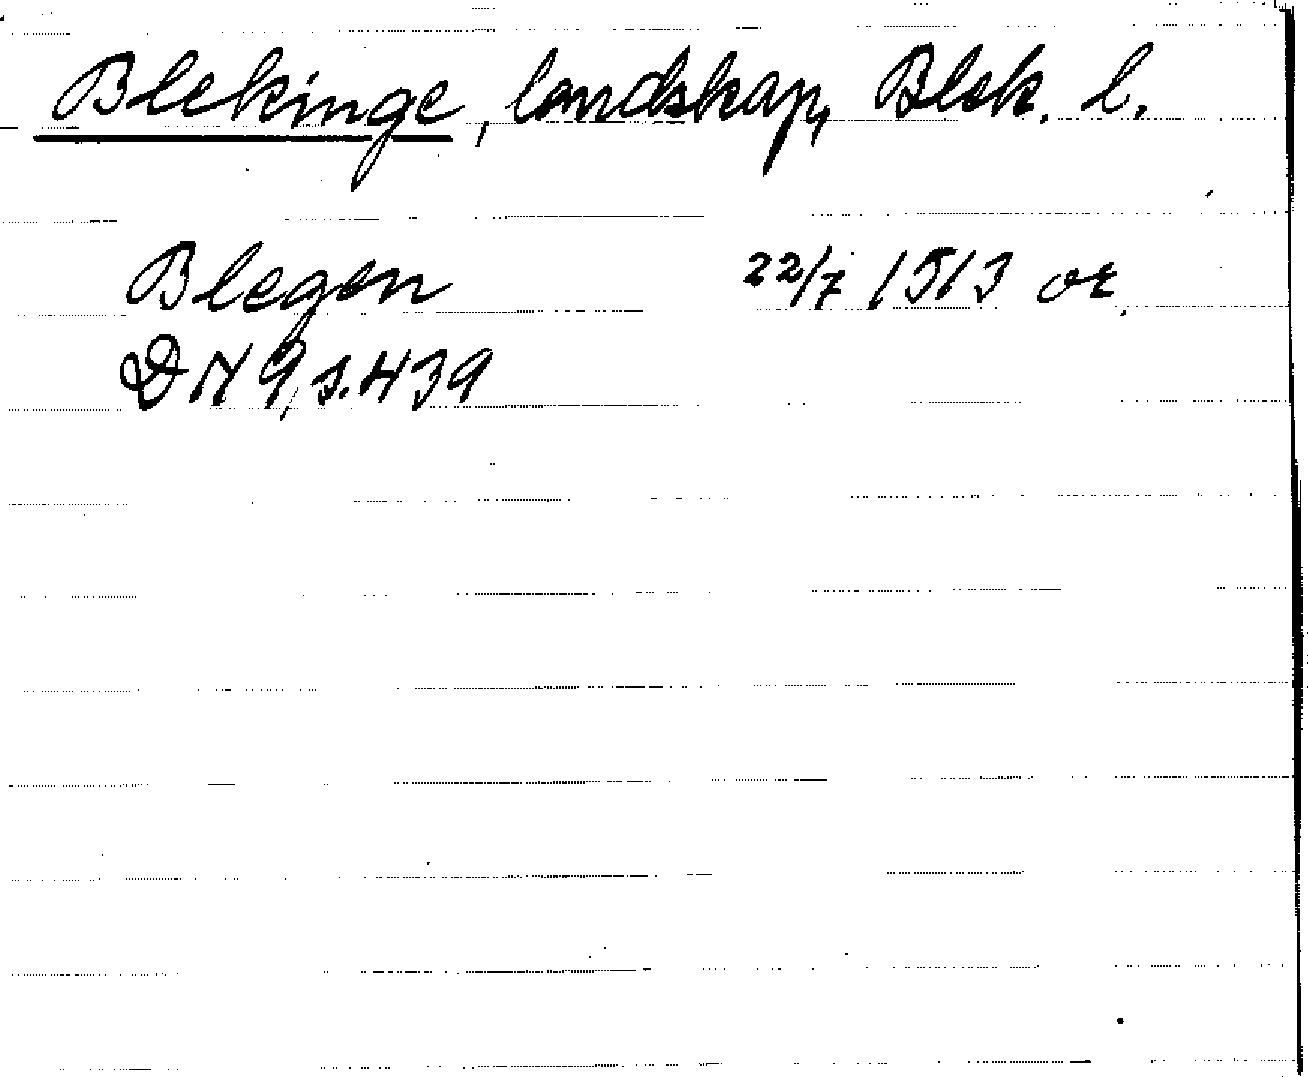 Blekinge, landskap, Blek. l.
Blegen 22/7 1513 or.
DN 9, s. 439